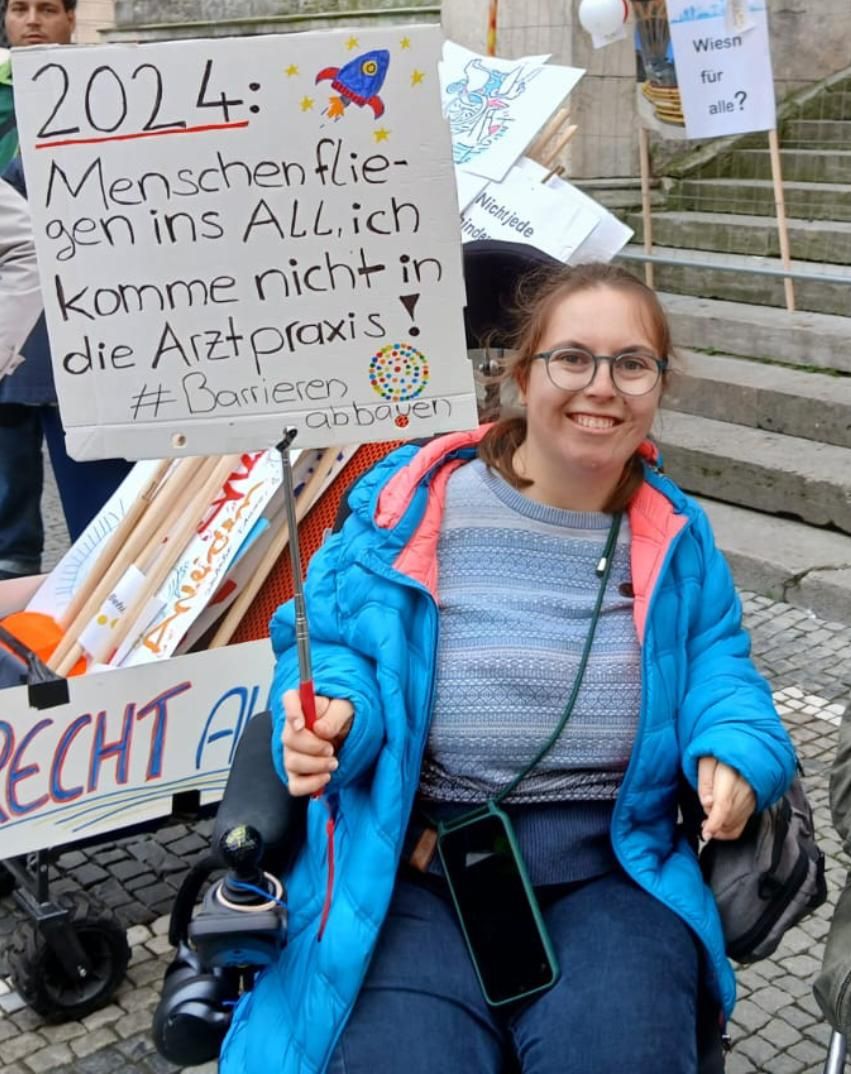 2024:
Menschen flie-
gen ins ALL, ich
komme nicht in
die Arztpraxis!
#Barrieren
abbauen
Wiesn
für
alle?
Nicht jede
RECHT AU